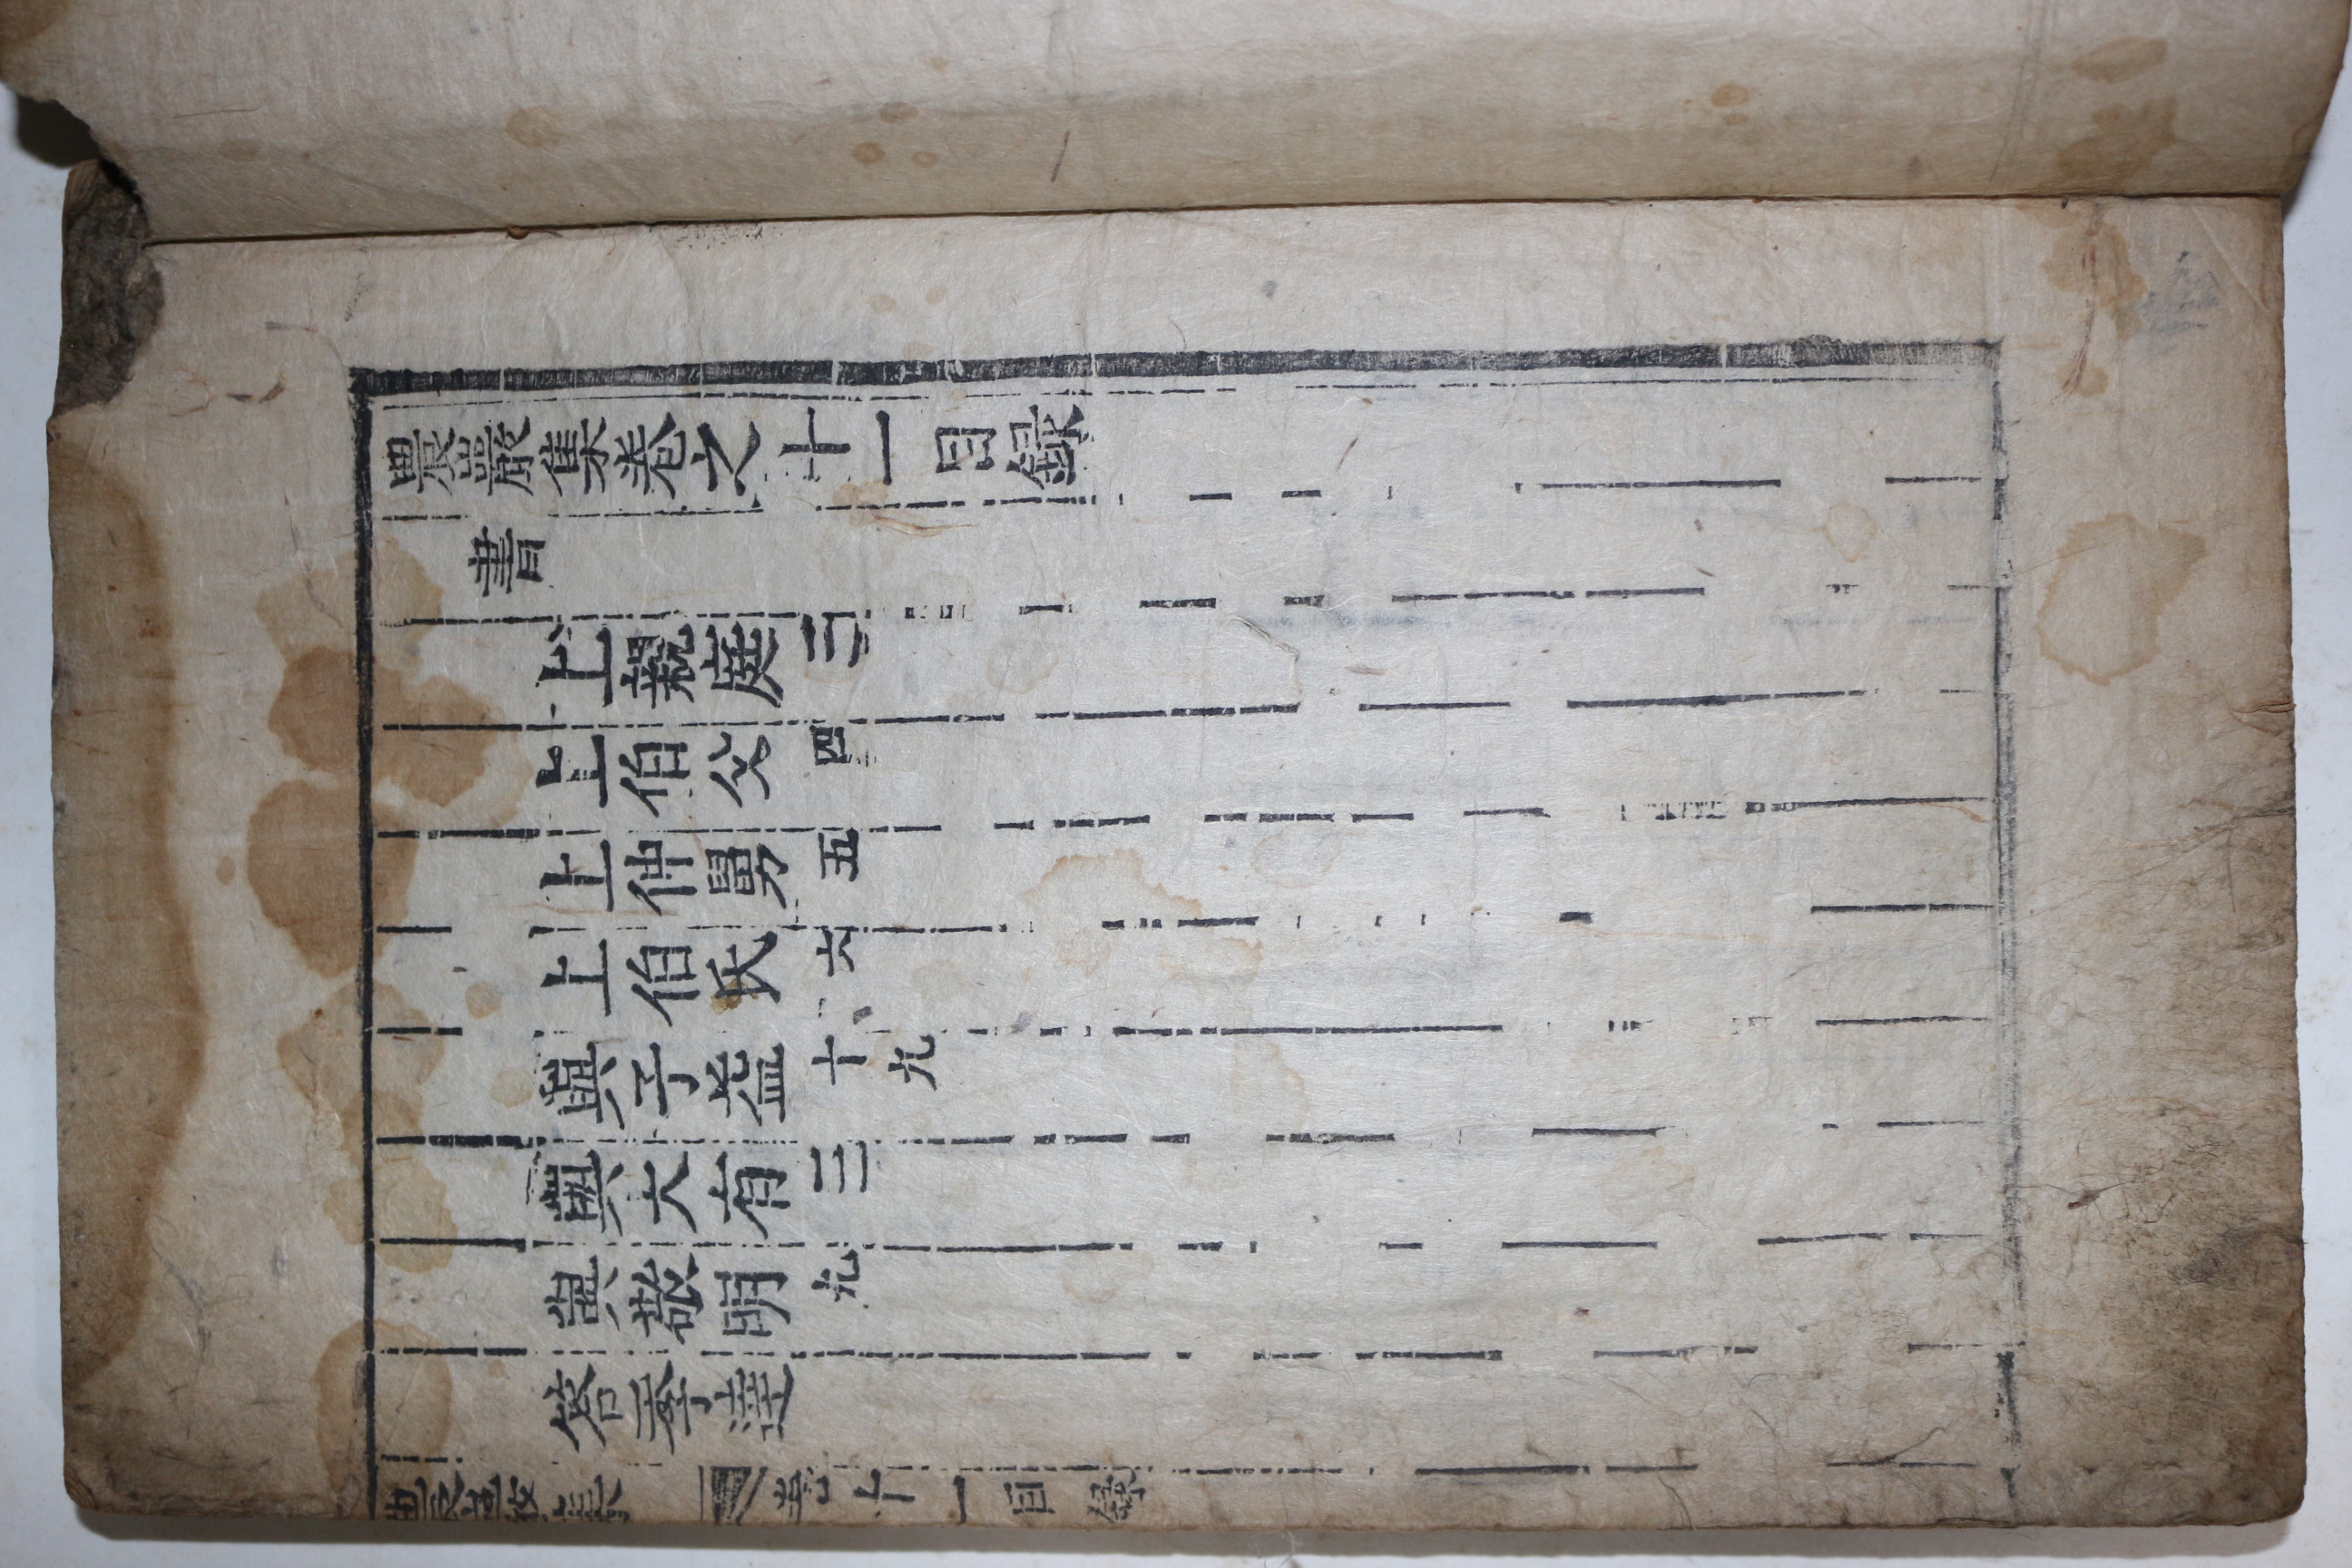 農巖集卷之十一目録
書
上親庭三
上伯父四
上仲舅五
上伯氏六
與子益十九
與大有三
與敬明九
答季達
農巖集 卷十一目録